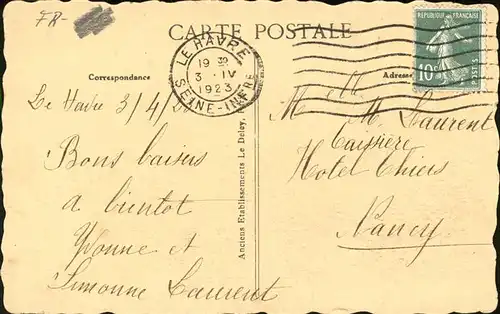 FR-
CARTE POSTALE
Correspondance
Adresse
LE HAVRE
19 30
3 · IV
1923
SEINE-INFRE
REPUBLIQUE FRANÇAISE
10c
POSTES
Le Havre 3/4/23
Bons baisers
a bientot
Yvonne et
Simonne Laurent
Anciens Etablissements Le Deley,
Melle M. Laurent
Caissière
Hotel Thiers
Nancy